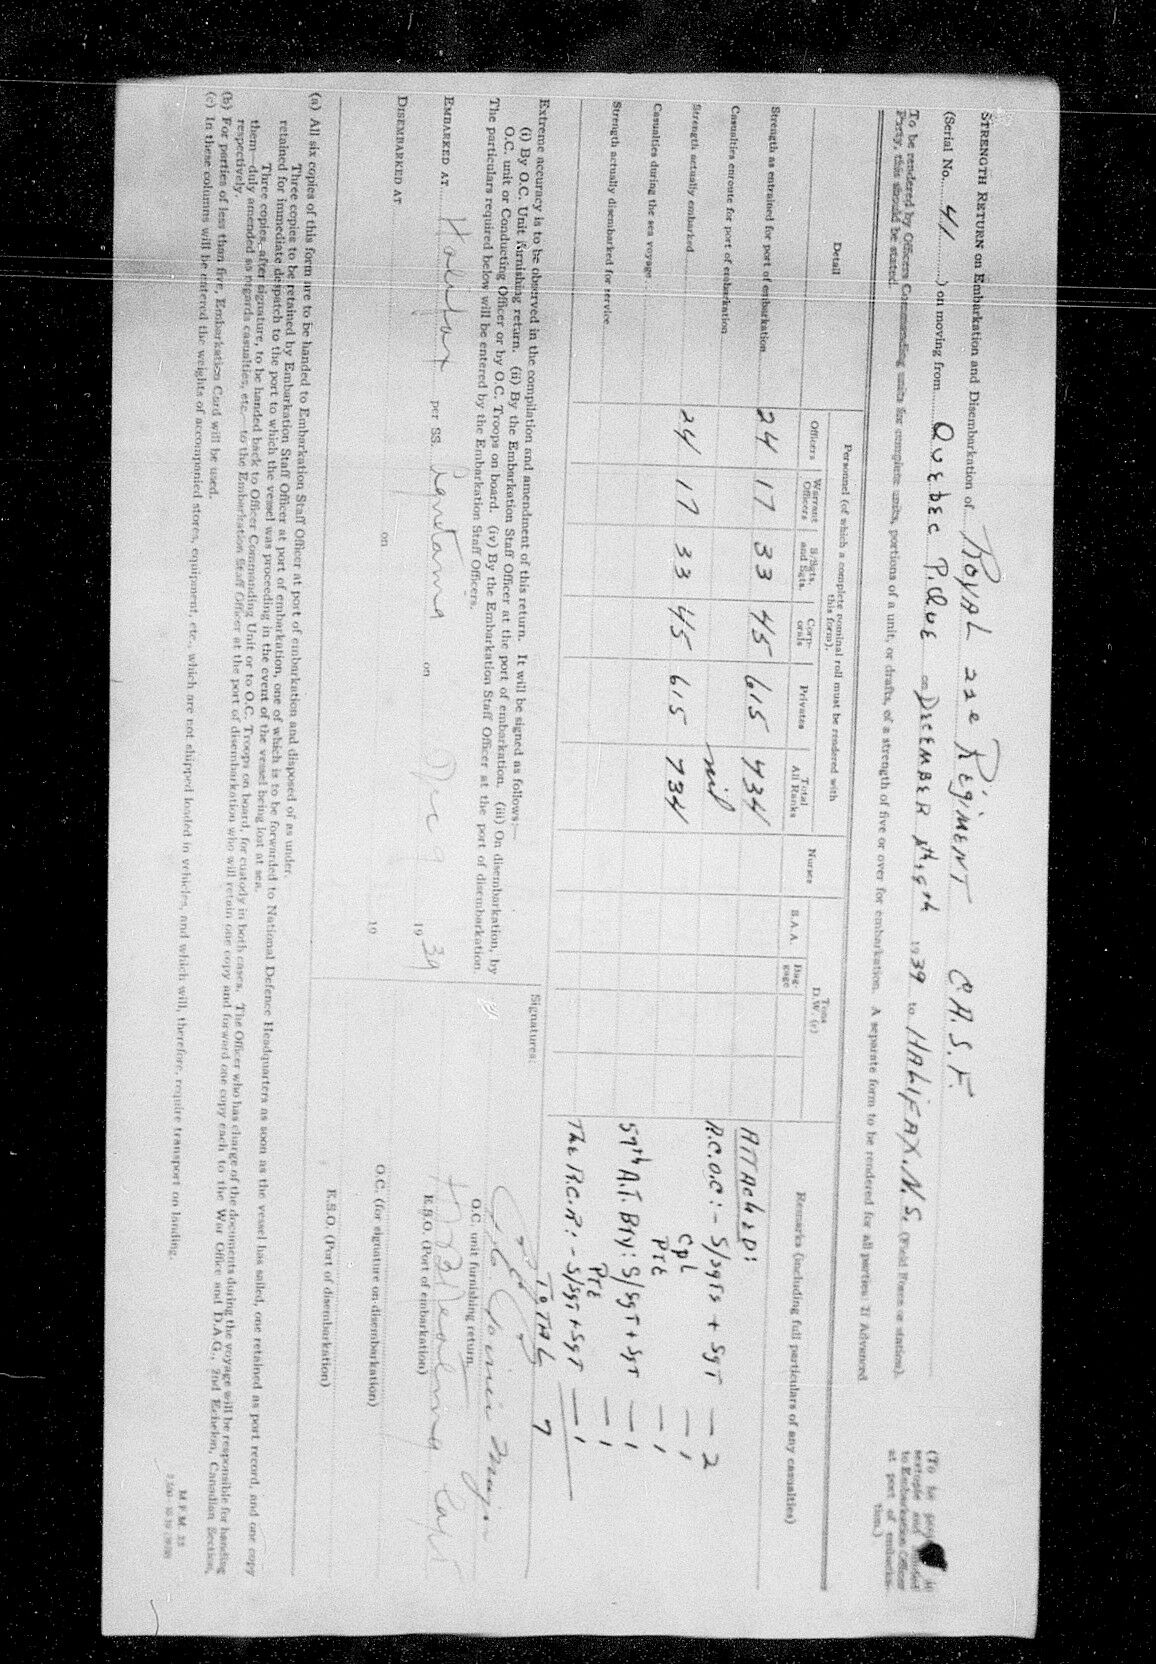 STRENGTH RETURN on Embarkation and Disembarkation of ROYAL 22e RÉGIMENT C.A.S.F.
(Serial No. 41 ) on moving from QUEBEC P.QUE on DECEMBER 8th, 9th 1939 to HALIFAX. N.S. (Field Force or station).
To be rendered by Officers Commanding units for complete units, portions of a unit, or drafts, of a strength of five or over for embarkation. A separate form to be rendered for all parties. If Advanced
Party, this should be stated.
(To be in
and
to Embarkation Officer
at port of embarka-
tion.)
Detail
Personnel (of which a complete nominal roll must be rendered with
this form).
Officers
Warrant
Officers
S/Sgts.
and Sgts.
Corp-
orals
Privates
Total
All Ranks
Nurses
Tons
D.W. (c)
S.A.A.
Bag-
gage
Remarks (including full particulars of any casualties)
Strength as entrained for port of embarkation 24 17 33 45 615 734
Casualties enroute for port of embarkation nil
Strength actually embarked 24 17 33 45 615 734
Casualties during the sea voyage
Strength actually disembarked for service
ATTACHED:
R.C.O.C:- S/Sgts + Sgt — 2
Cpl — 1
Pte — 1
59th A.T. Bty: S/Sgt + Sgt — 1
Pte — 1
The R.C.R:- S/Sgt + Sgt — 1
TOTAL 7
Extreme accuracy is to be observed in the compilation and amendment of this return. It will be signed as follows:—
(i) By O.C. Unit furnishing return. (ii) By the Embarkation Staff Officer at the port of embarkation. (iii) On disembarkation, by
O.C. unit or Conducting Officer or by O.C. Troops on board. (iv) By the Embarkation Staff Officer at the port of disembarkation.
The particulars required below will be entered by the Embarkation Staff Officers.
Signatures:
EMBARKED AT Halifax per SS. Aquitania on Dec 9 1939
DISEMBARKED AT on 19
Major
O.C. unit furnishing return.
Capt
E.S.O. (Port of embarkation)
O.C. (for signature on disembarkation)
E.S.O. (Port of disembarkation)
(a) All six copies of this form are to be handed to Embarkation Staff Officer at port of embarkation and disposed of as under.
Three copies to be retained by Embarkation Staff Officer at port of embarkation, one of which is to be forwarded to National Defence Headquarters as soon as the vessel has sailed, one retained as port record, and one copy
retained for immediate despatch to the port to which the vessel was proceeding in the event of the vessel being lost at sea.
Three copies, after signature, to be handed back to Officer Commanding Unit or to O.C. Troops on board, for custody in both cases. The Officer who has charge of the documents during the voyage will be responsible for handing
them—duly amended as regards casualties, etc.—to the Embarkation Staff Officer at the port of disembarkation who will retain one copy and forward one copy each to the War Office and D.A.G., 2nd Echelon, Canadian Section,
respectively.
(b) For parties of less than five, Embarkation Card will be used.
(c) In these columns will be entered the weights of accompanied stores, equipment, etc. which are not shipped loaded in vehicles, and which will, therefore, require transport on landing.
M.F.M. 33